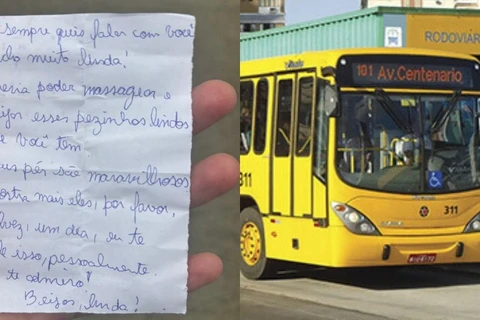 sempre quis falar com você
muito linda!
poder massagear e
esses pezinhos lindos
você tem
pés são maravilhosos
mais eles, por favor,
um dia, eu te
isso, pessoalmente.
te admiro!
Beijos, linda!
RODOVIÁR
101 Av.Centenario
311
311